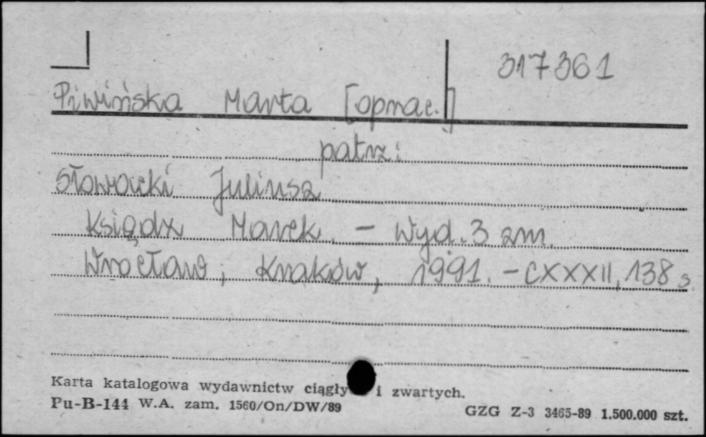 317361
Piwińska Marta [oprac.]
patrz:
Słowacki Juliusz
Ksiądz Marek. - Wyd. 3 zm.
Wrocław, Kraków, 1991. - CXXXII, 138 s.
Karta katalogowa wydawnictw ciągły i zwartych.
Pu-B-144 W.A. zam. 1560/On/DW/89
GZG Z-3 3465-89 1.500.000 szt.